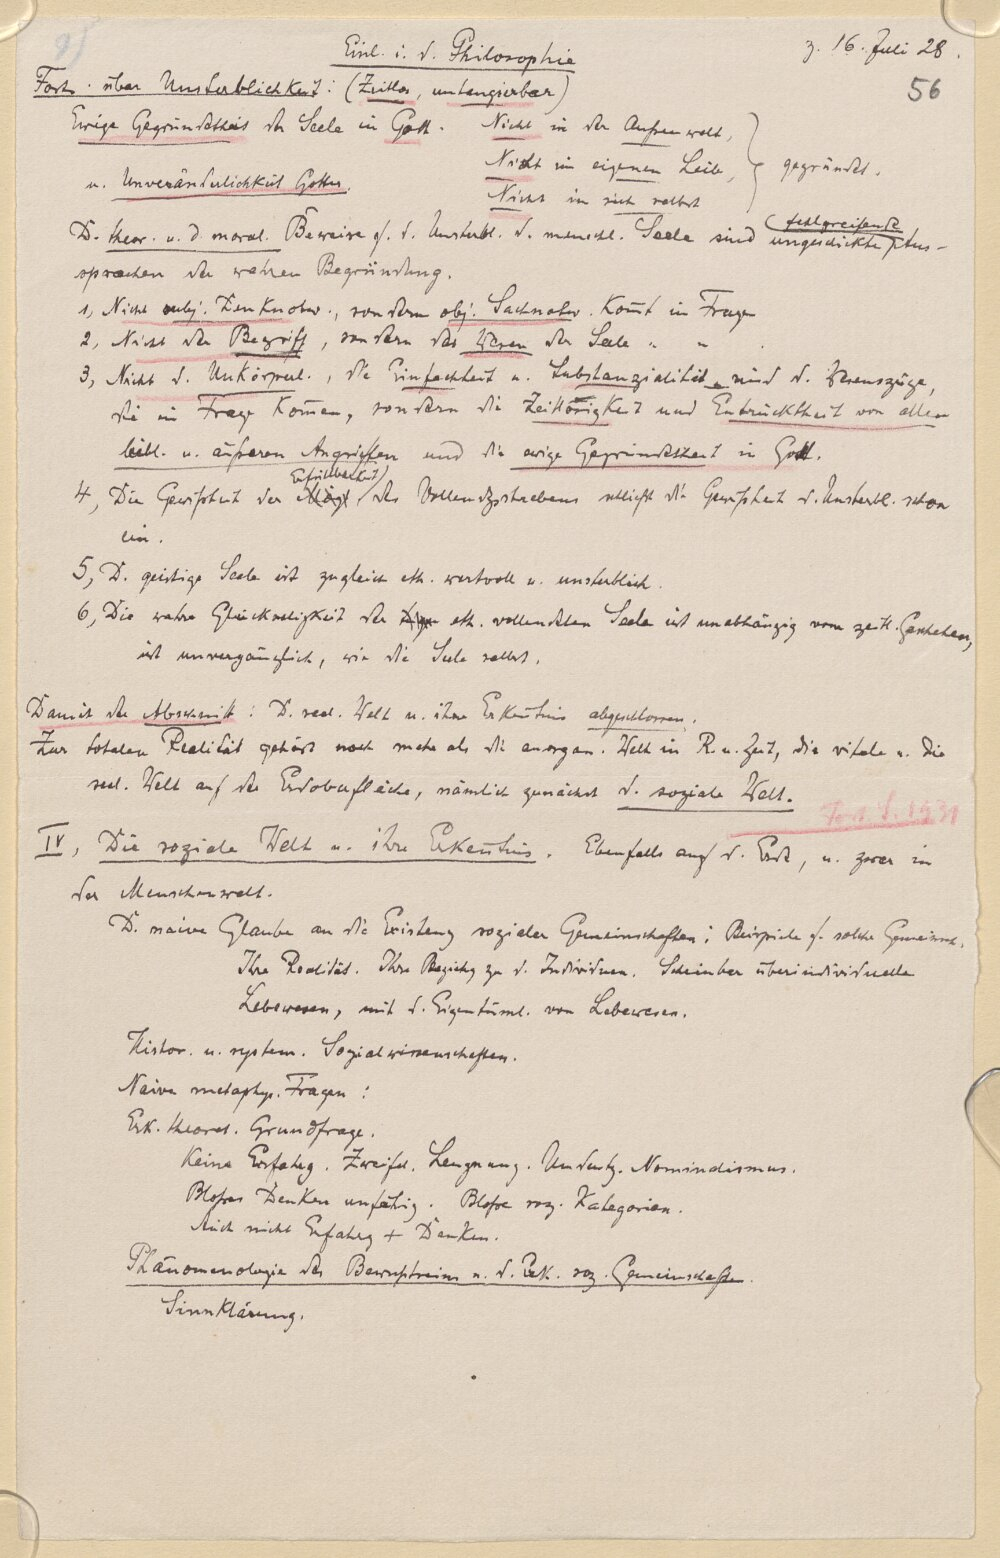 Einl. i. d. Philosophie
z. 16. Juli 28.
56
Forts. über Unsterblichkeit: (Zeitlos, untangierbar)
Ewige Gegründetheit der Seele in Gott.
u. Unveränderlichkeit Gottes.
Nicht in der Außenwelt,
Nicht im eigenen Leibe,
Nicht in sich selbst
gegründet.
fehlgreifende
D. theor. u. d. moral. Beweise f. d. Unsterbl. d. menschl. Seele sind ungeschickte Aus-
sprachen der wahren Begründung.
1, Nicht subj. Denknotw., sondern obj. Sachnotw. kommt in Fragen
2, Nicht der Begriff, sondern das Wesen der Seele " " .
3, Nicht d. Unkörperl., die Einfachheit u. Substanzialität sind d. Wesenszüge,
die in Frage kommen, sondern die Zeitlosigkeit und Entrücktheit von allen
leibl. u. äußeren Angriffen und die ewige Gegründetheit in Gott.
Erfüllbarkeit
4, Die Gewißheit der Mögl. des Vollendgsstrebens schließt die Gewißheit d. Unsterbl. schon
ein.
5, D. geistige Seele ist zugleich eth. wertvoll u. unsterblich.
6, Die wahre Glückseligkeit der eth. vollendeten Seele ist unabhängig vom zeitl. Geschehen,
ist unvergänglich, wie die Seele selbst.
Damit der Abschnitt: D. seel. Welt u. ihre Erkenntnis abgeschlossen.
Zur totalen Realität gehört noch mehr als die anorgan. Welt in R. u. Zeit, die vitale u. die
seel. Welt auf der Erdoberfläche, nämlich zunächst d. soziale Welt.
1931
IV, Die soziale Welt u. ihre Erkenntnis. Ebenfalls auf d. Erde, u. zwar in
der Menschenwelt.
D. naive Glaube an die Existenz sozialer Gemeinschaften: Beispiele f. solche Gemeinsch.
Ihre Realität. Ihre Beziehg zu d. Individuen. Scheinbar überindividuelle
Lebewesen, mit d. Eigentüml. von Lebewesen.
Histor. u. system. Sozialwissenschaften.
Naive metaphys. Fragen:
Erk. theoret. Grundfrage.
Keine Erfahrg. Zweifel. Leugnung. Umdeutg. Nominalismus.
Bloßes Denken unfähig. Bloße soz. Kategorien.
Auch nicht Erfahrg + Denken.
Phänomenologie des Bewußtseins u. d. Erk. soz. Gemeinschaften.
Sinnklärung.